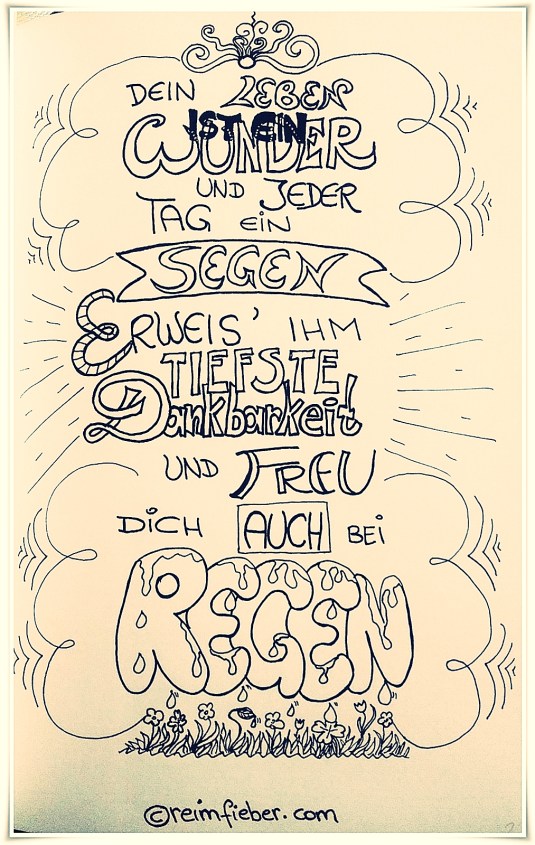 DEIN LEBEN
IST EIN
WUNDER
UND JEDER
TAG EIN
SEGEN
ERWEIS' IHM
TIEFSTE
Dankbarkeit
UND FREU
DICH AUCH BEI
REGEN
©reimfieber.com